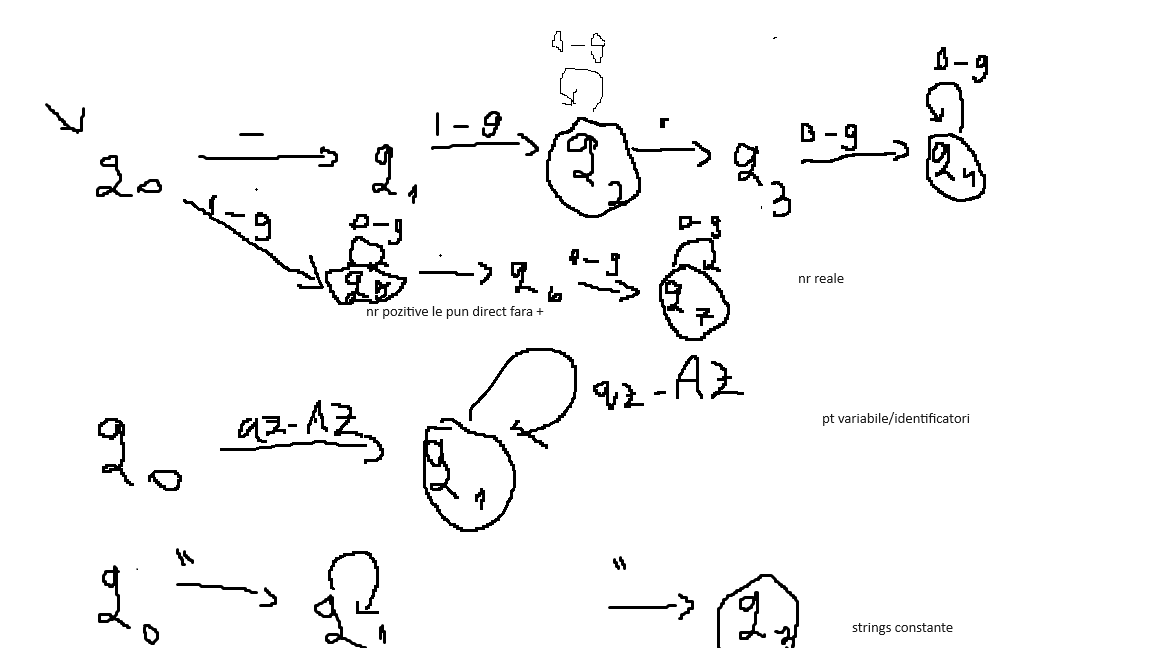 0-9
0-9
-
1-9
0-9
q0
q1
q2
q3
q4
1-9
0-9
0-9
0-9
q5
q6
q7
nr reale
nr pozitive le pun direct fara +
az-AZ
az-AZ
q0
q1
pt variabile/identificatori
"
"
q0
q1
q2
strings constante